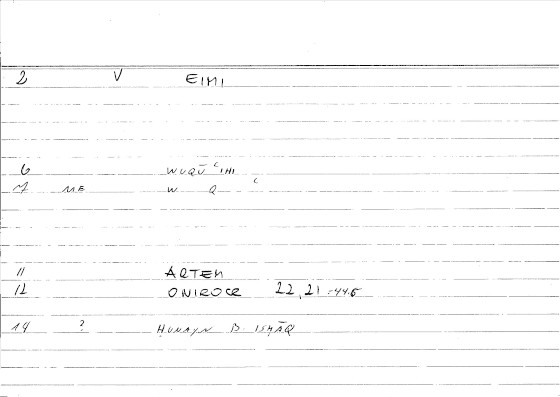 2 V EIMI
6 WUQŪʿIHI
7 ME W Q ʿ
11 ARTEM
12 ONIROCR 22,21 -44.5
14 ? ḤUNAYN B. ISḤĀQ